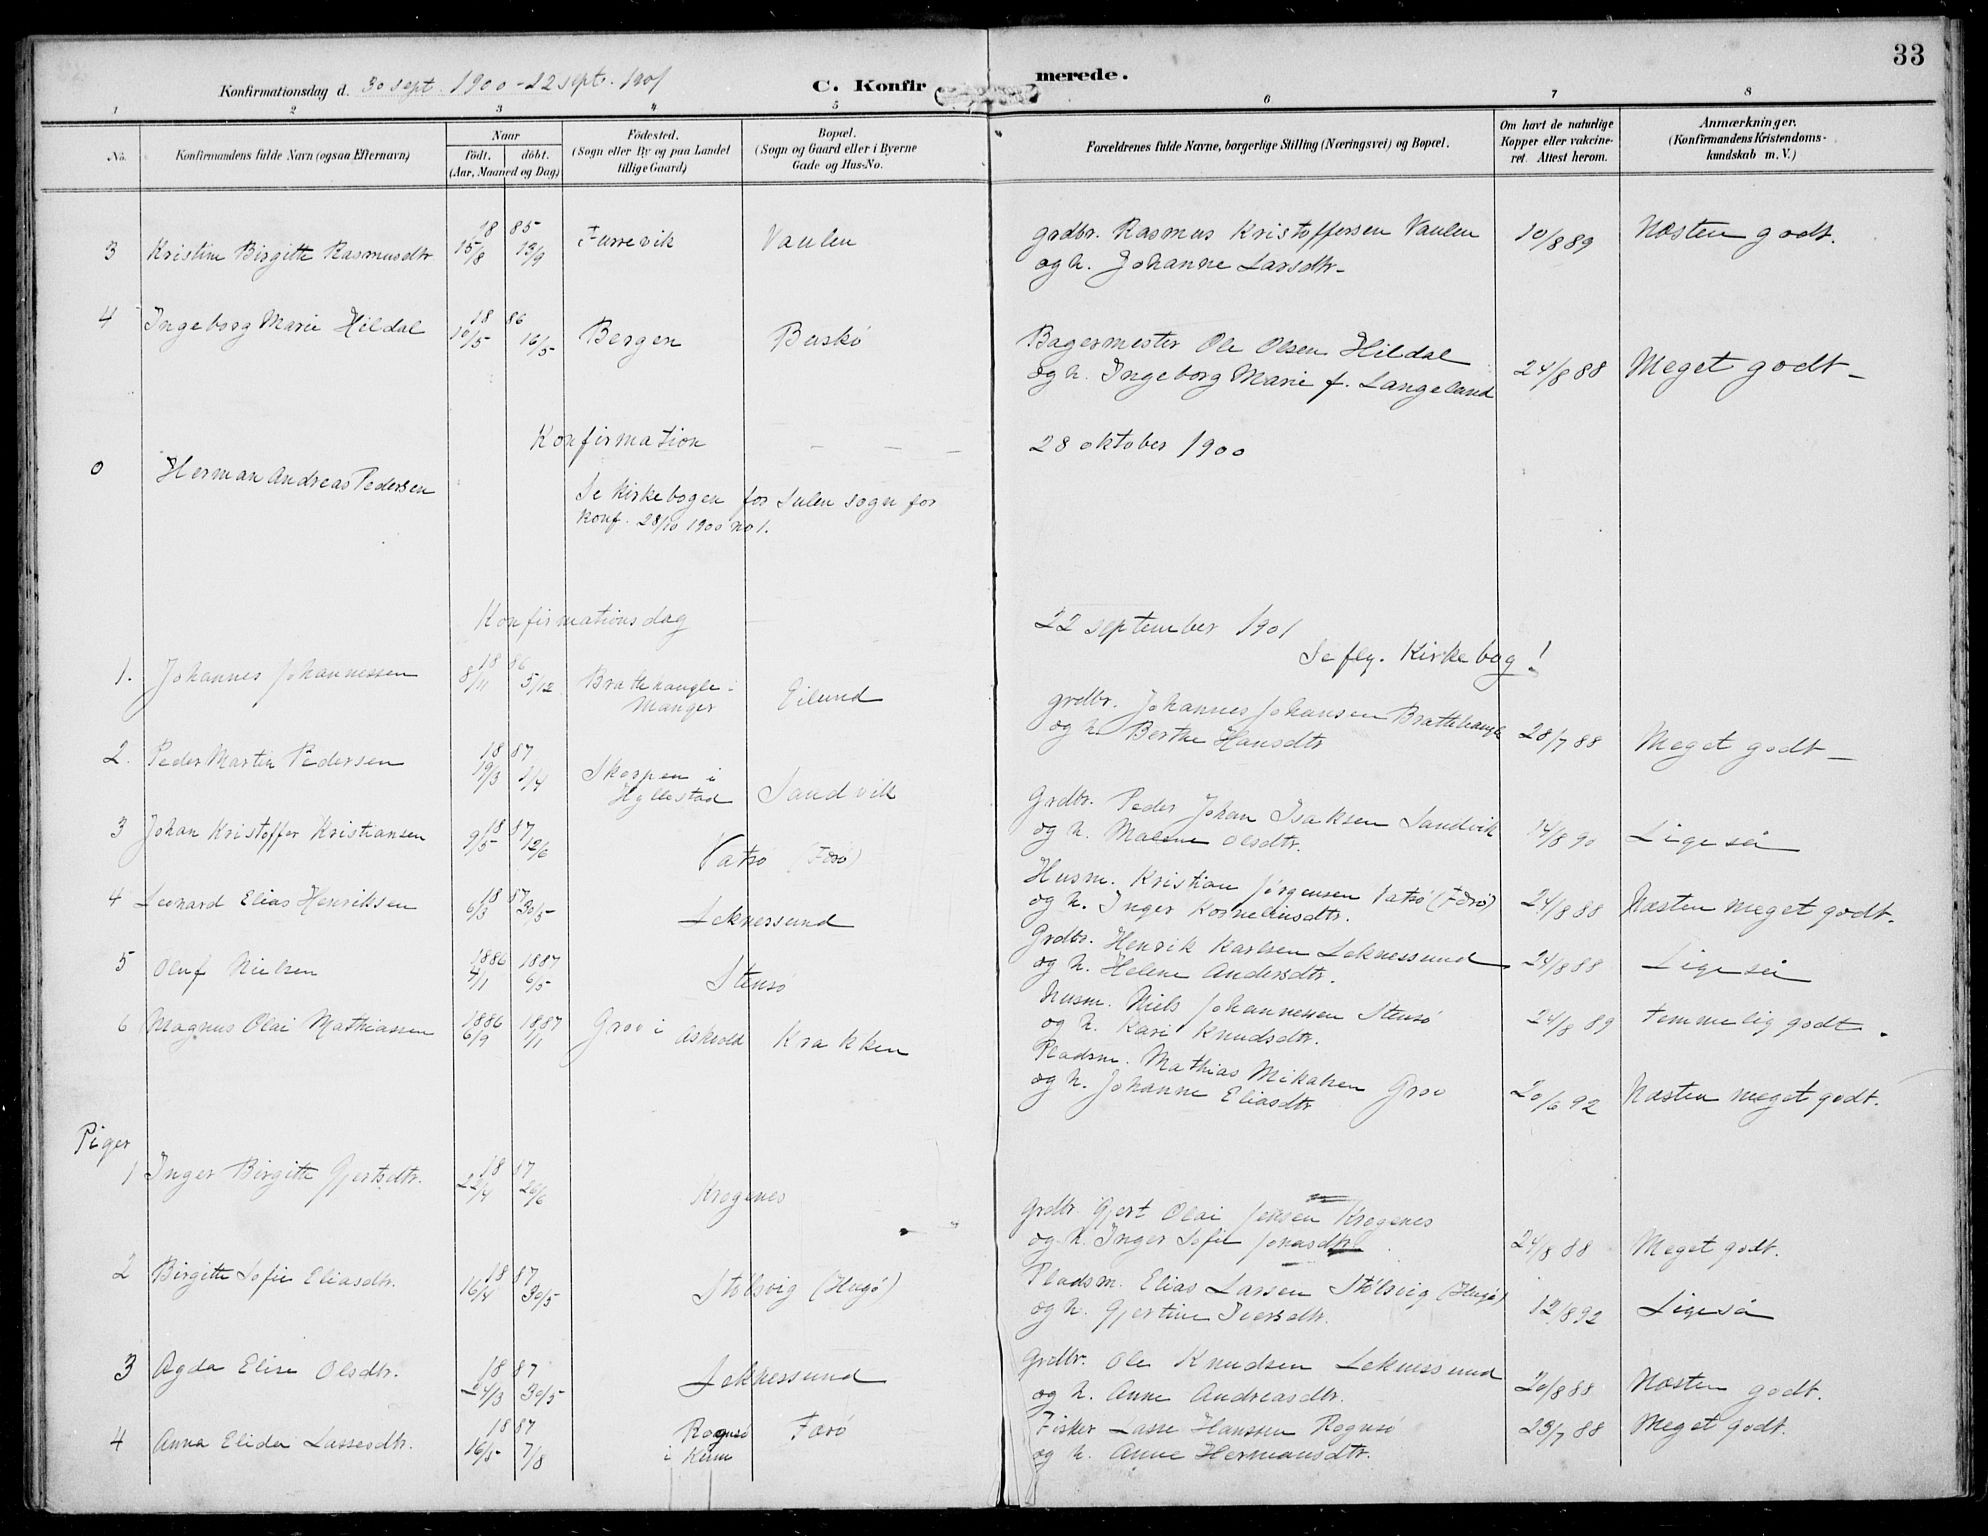 33
Konfirmationsdag d. 30 sept. 1900 - 22 sept. 1901
C. Konfirmerede.
1 2 3 4 5 6 7 8
No.
Konfirmandens fulde Navn (ogsaa Efternavn)
Naar
födt. döbt.
(Aar, Maaned og Dag)
Födested.
(Sogn eller By og paa Landet
tillige Gaard)
Bopæl.
(Sogn og Gaard eller i Byerne
Gade og Hus-No.
Forældrenes fulde Navne, borgerlige Stilling (Næringsvei) og Bopæl.
Om havt de naturlige
Kopper eller vakcine-
ret. Attest herom.
Anmærkninger.
(Konfirmandens Kristendoms-
kundskab m. V.)
3 Kristine Birgitte Rasmusdtr 1885 15/8 13/9 Furrevik Vaulen grdbr. Rasmus Kristoffersen Vaulen 10/8 89 Næsten godt.
og h. Johanne Larsdtr-
4 Ingeborg Marie Hildal 1886 10/5 16/5 Bergen Buskö Bagermester Ole Olsen Hildal
og h. Ingeborg Marie f. Langeland 24/8 88 Meget godt-
Konfirmation - - - 28 oktober 1900
0 Herman Andreas Pedersen Se Kirkebogen for Sulen sogn for
konf. 28/10 1900 no 1.
Konfirmationsdag 22 september 1901
Se flg. Kirkebog!
1. Johannes Johannessen 1886 8/11 5/12 Brathhaugle i
Manger Eilund grdbr. Johannes Johansen Brathhaugle
og h. Berthe Hansdtr 28/7 88 Meget godt-
2. Peder Martin Pedersen 1887 19/3 1/4 Skorpen i
Hyllestad Sandvik Grdbr. Peder Johan Isaksen Sandvik
og h. Malene Olsdtr. 14/8 90 Ligeså
3 Johan Kristoffer Kristiansen 1887 9/5 12/6 Vatsö (Færö) Husm. Kristian Jörgensen Vatsö (Færö)
og h. Inger Korneliusdtr. 24/8 88 Næsten meget godt.
4 Leonard Elias Henriksen 1887 6/3 30/5 Leknessund Grdbr. Henrik Karlsen Leknessund
og h. Helene Andersdtr. 24/8 88 Ligeså
5 Oluf Nielsen 1886 4/11 1887 6/5 Stensö Husm. Niels Johannessen Stensö
og h. Kari Knudsdtr. 24/8 89 temmelig godt.
6 Magnus Olai Mathiassen 1886 6/9 1887 1/1 Groo i Askvold Krakken Pladsm. Mathias Mikalsen Groo
og h. Johanne Eliasdtr 20/6 92 Næsten meget godt.
Piger
1 Inger Birgitte Gjertsdtr. 1887 22/4 26/6 Krogenes Grdbr. Gjert Olai Jensen Krogenes
og h. Inger Sofie Jonasdtr. 24/8 88 Meget godt.
2 Birgitte Sofie Eliasdtr. 1887 16/4 30/5 Stölsvig (Hugö) Pladsm. Elias Larsen Stölsvig (Hugö)
og h. Gjertine Iversdtr. 12/8 92 Ligeså
3 Agda Elise Olsdtr. 1887 24/3 30/5 Leknessund Grdbr. Ole Knudsen Leknessund
og h. Anne Andreasdtr. 20/8 88 Næsten godt.
4 Anna Elida Lassesdtr. 1887 16/5 7/8 Rognsö
i Kinn Færö Fisker Lasse Hanssen Rognsö
og h. Anne Hermansdtr. 23/7 88 Meget godt.